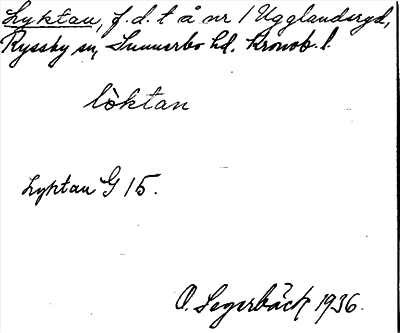 Lyktan, f.d. t å nr 1 Ugglandsryd,
Ryssby sn, Sunnerbo hd. Kronob. l.
lòktan
Lyktan G 15.
O. Segerbäck 1936.